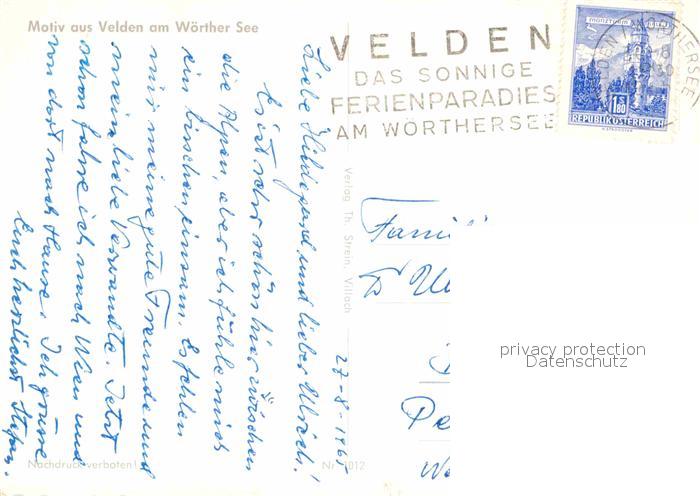 Motiv aus Velden am Wörther See
VELDEN
DAS SONNIGE
FERIENPARADIES
AM WÖRTHERSEE
MÜNZTURM
1.80
REPUBLIK ÖSTERREICH
27-8-1965
Liebe Hildegard und lieber Ulrich!
Es ist sehr schön hier zwischen
die Alpen, aber ich fühle mich
ein bisschen einsam. Es fehlen
mir meine gute Freunde und
meine liebe Verwandte. Jetzt
schon fahre ich nach Wien und
von dort nach Hause. Ich grüsse
Euch herzlichst Stefan.
Verlag Th. Strein, Villach
Famili
D
Pe
privacy protection
Datenschutz
Nachdruck verboten!
Nr. 1012